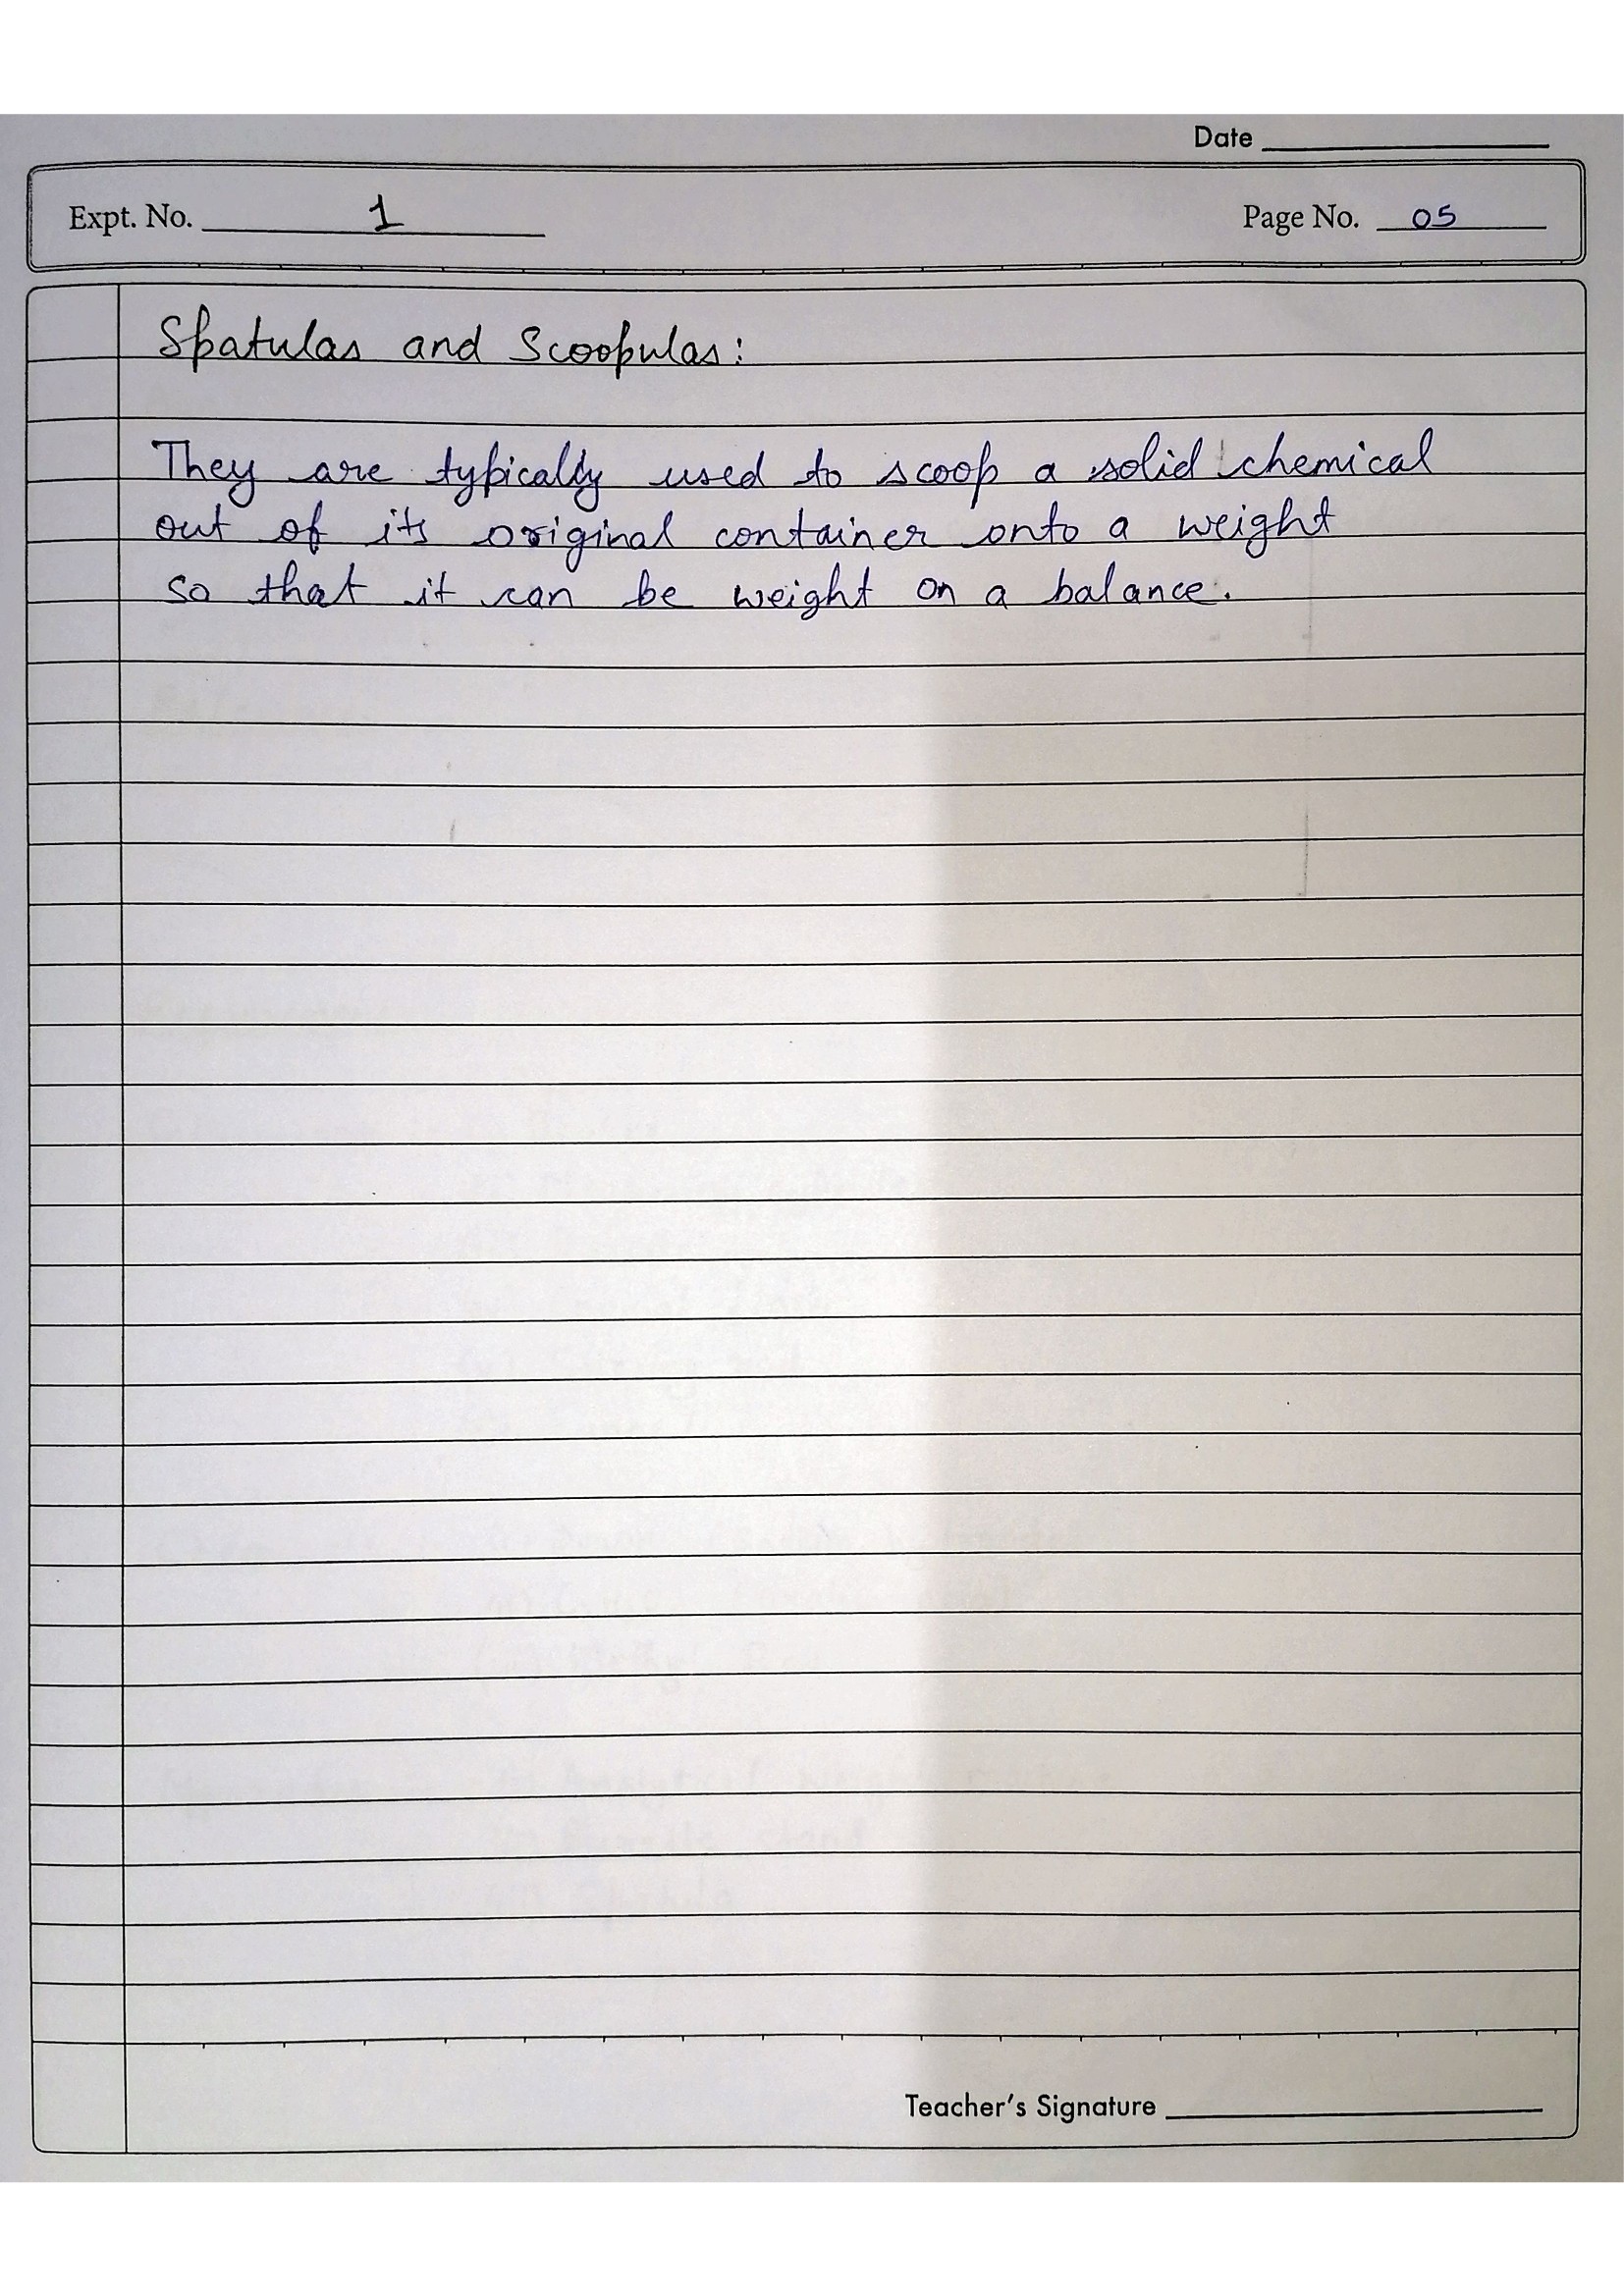 Date
Expt. No. 1
Page No. 05
Spatulas and Scoopulas:
They are typically used to scoop a solid chemical
out of its original container onto a weight
so that it can be weight on a balance.
Teacher's Signature